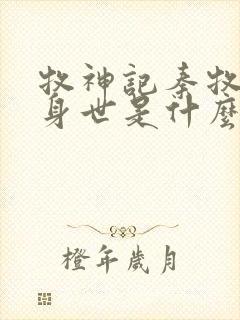 牧神記秦牧
身世是什麼
橙年歲月